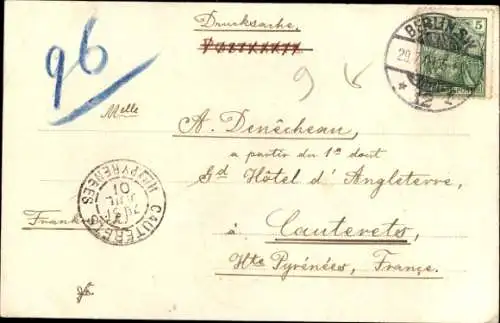 Drucksache.
Postkarte
96
9
BERLIN S.W.
29.7.
12
5
Melle
A. Denêcheau,
a partir du 1er dout
Gd Hôtel d'Angleterre,
Frank
à Cauterets,
Hte Pyrénées, France.
CAUTERETS
HTES PYRENEES
JUIL
01